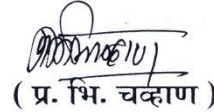 ( प्र. भि. चव्हाण )